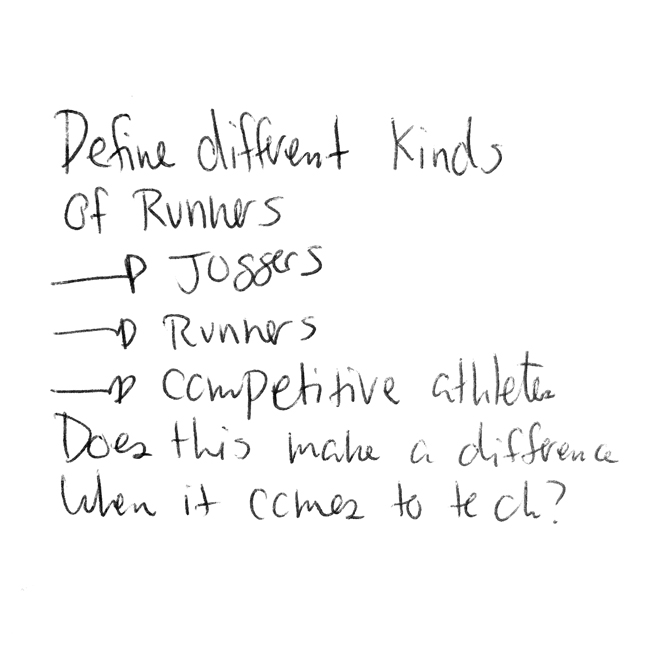 Define different kinds
of Runners
→ Joggers
→ Runners
→ Competitive athletes
Does this make a difference
when it comes to tech?